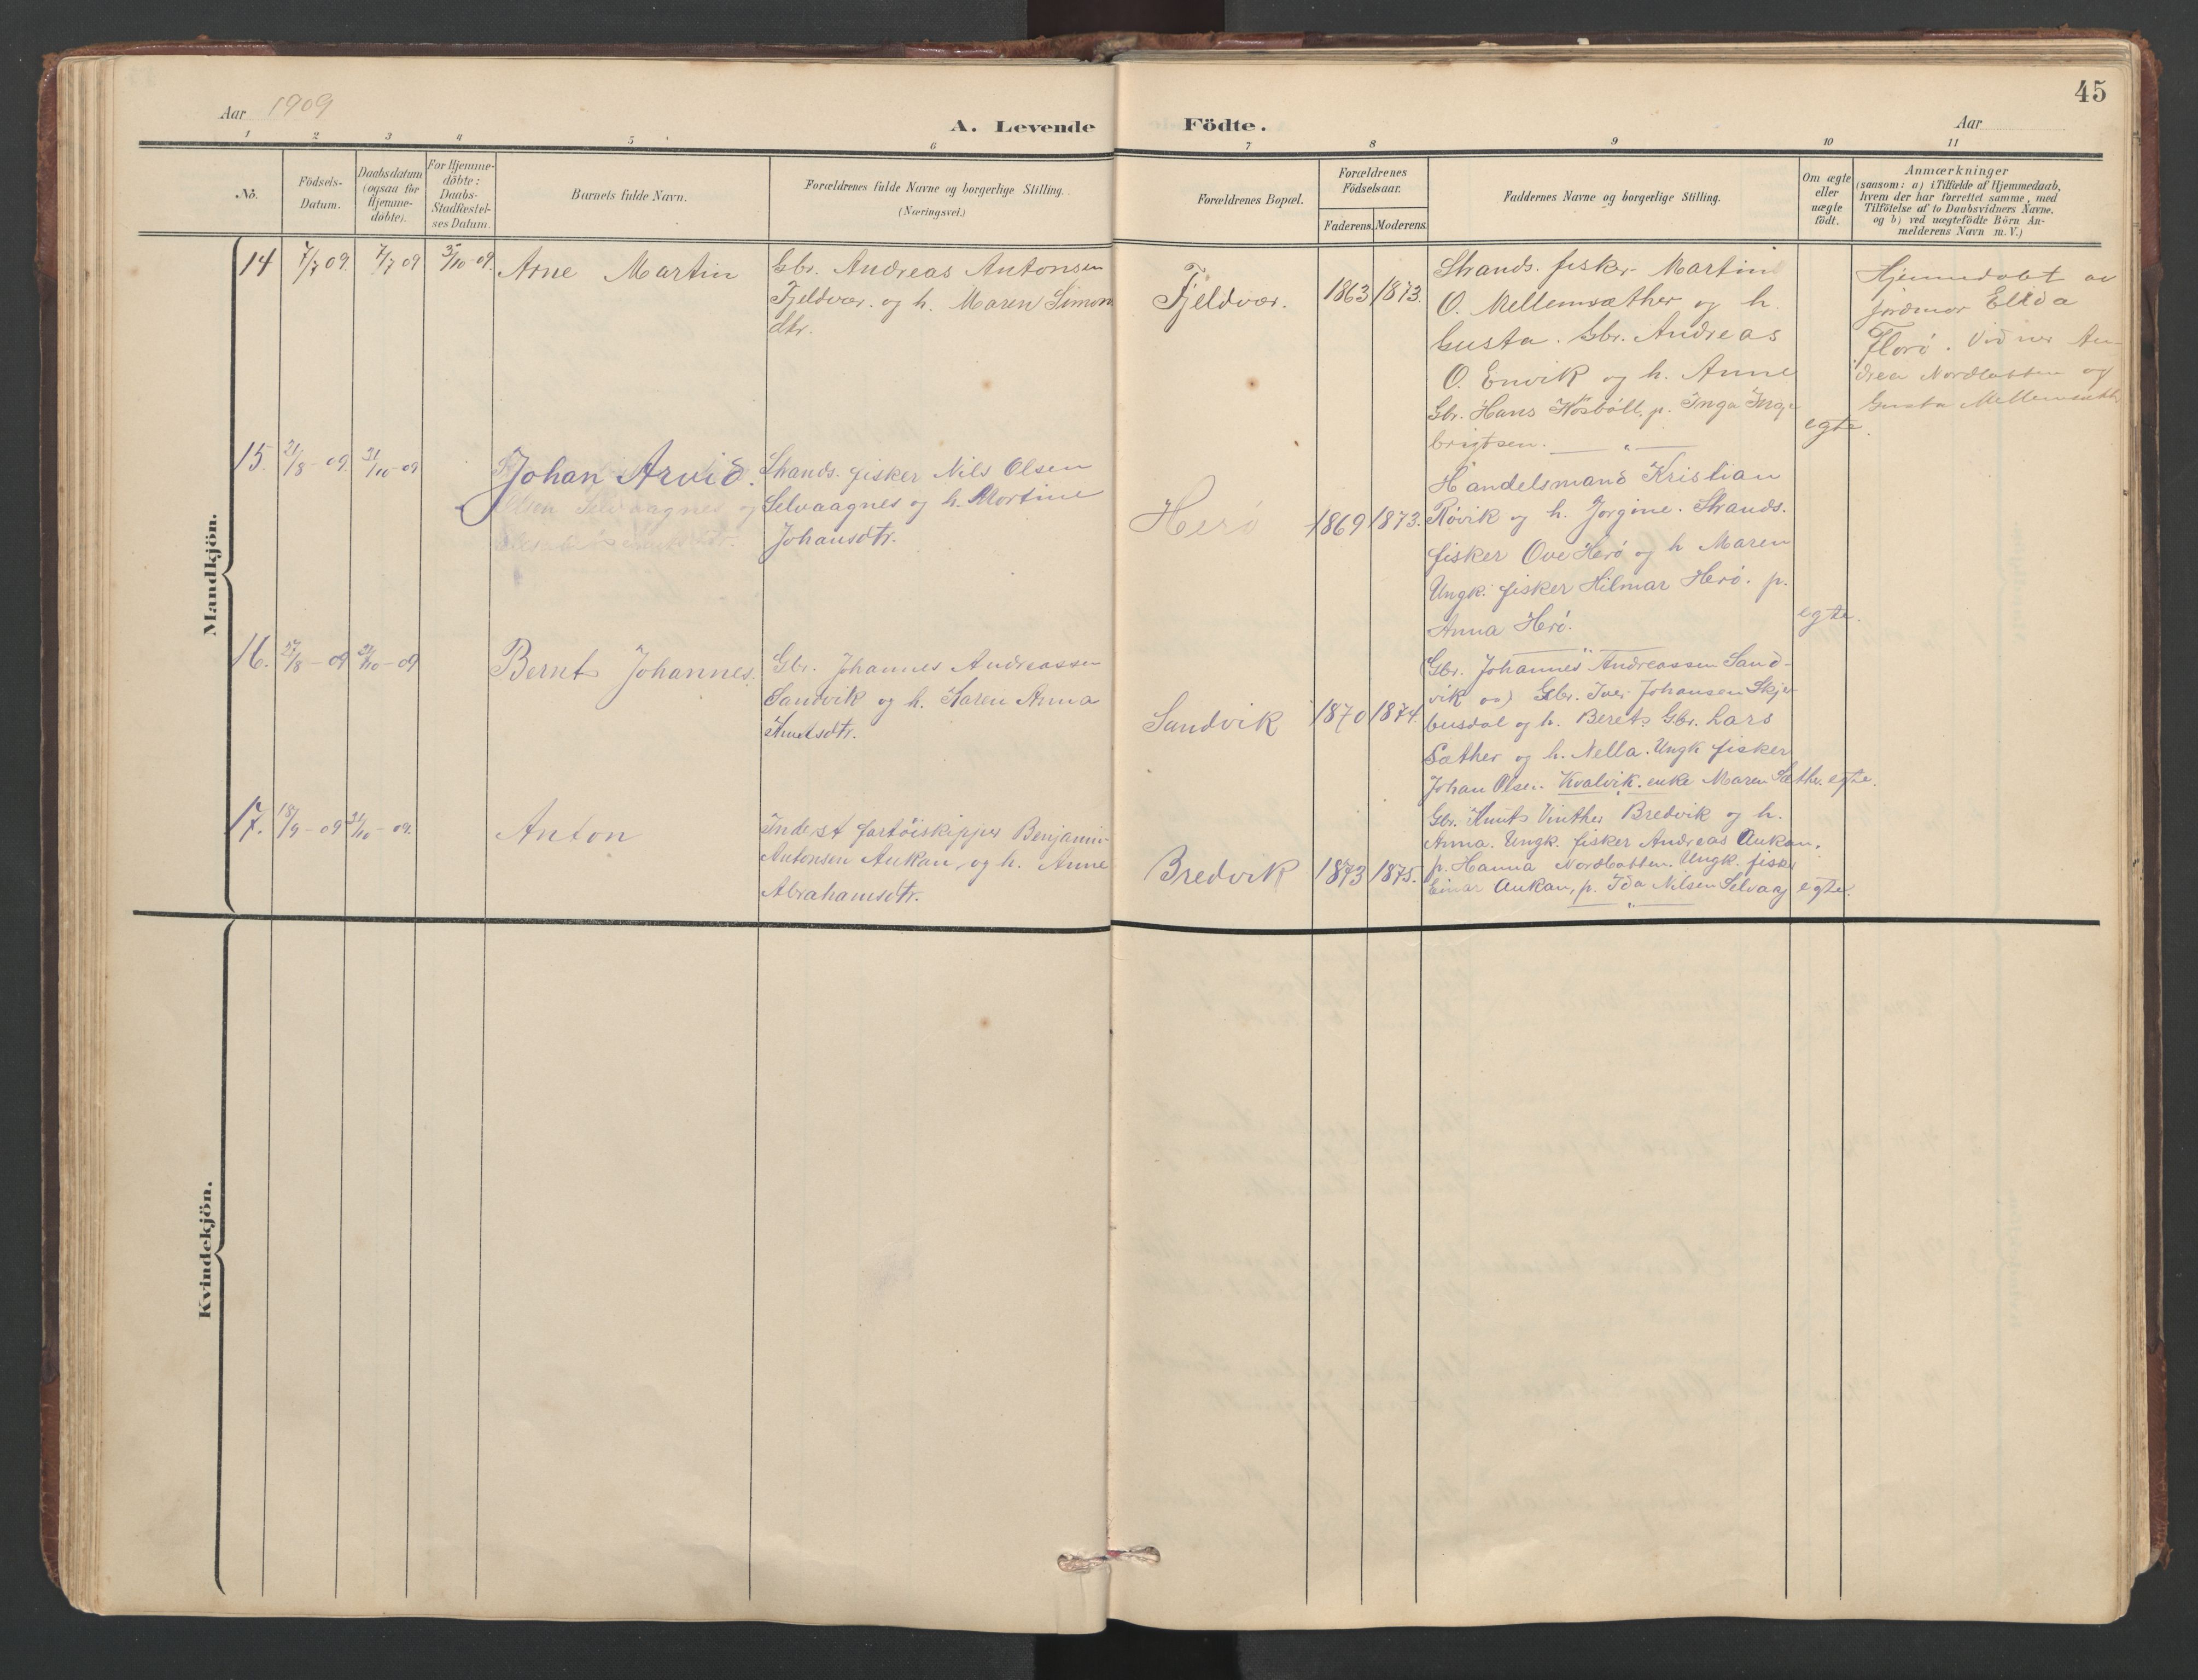 45
Aar 1909
A. Levende Födte.
Aar
1 2 3 4 5 6 7 8 9 10 11
Nö.
Födsels-
Datum.
Daabsdatum
(ogsaa for
Hjemme-
döbte).
For Hjemme-
döbte:
Daabs-
Stadfæstel-
ses Datum.
Barnets fulde Navn.
Forældrenes fulde Navne og borgerlige Stilling.
(Næringsvei.)
Forældrenes Bopæl.
Forældrenes
Födselsaar.
Faderens. Moderens.
Faddernes Navne og borgerlige Stilling.
Om ægte
eller
uægte
födt.
Anmærkninger
(saasom: a) i Tilfælde af Hjemmedaab,
hvem der har forrettet samme, med
Tilföielse af to Daabsvidners Navne,
og b) ved uægtefödte Börn An-
melderens Navn m. V.)
Mandkjön.
14 7/7 09. 7/7 09 3/10-09. Arne Martin
Gbr. Andreas Antonsen
Fjeldvær. og h. Maren Simons
dtr.
Fjeldvær. 1863 1873.
Strands. fisker Martin
O. Mellemsæther og h.
Gusta. Gbr. Andreas
O. Envik og h. Anne
Gbr. Hans Kösböll, p. Inga Inge
brigtsen.
egte.
Hjemmedøbt av
jordmor Elida
Florö. Vidner An-
drea Nordbotten og
Gusta Mellemsæth
15. 21/8-09. 31/10-09 Johan Arvid.
Strands. fisker Nils Olsen
Selvaagnes og h. Mortine
Johansdtr.
Herö 1869 1873.
Handelsmand Kristian
Rövik og h. Jorgine. Strands.
fisker Ove Herö og h Maren
Ungk. fisker Hilmar Herö. p.
Anna Herö.
egte.
16. 27/8-09 31/10-09 Bernt Johannes.
Gbr. Johannes Andreassen
Sandvik og h. Karen Anna
Knutsdtr.
Sandvik 1870 1874.
Gbr. Johannes Andreassen Sand-
vik Gbr. Iver Johansen Skje-
busdal og h. Beret. Gbr. Lars
Sæther og h. Nella. Ungk fisker
Johan Olsen Kvalvik. enke Maren Sæther. egte.
17. 18/9-09 31/10-09. Anton
Inderst fartöiskipper Benjamin
Antonsen Aukan, og h. Anne
Abrahamsdtr.
Bredvik 1873 1875.
Gbr. Knut Vinther Bredvik og h.
Anna. Ungk. fisker Andreas Aukan.
p. Hanna Nordbotten. Ungk. fisker
Einar Aukan, p. Ida Nilsen Selvaag egte.
Kvindekjön.